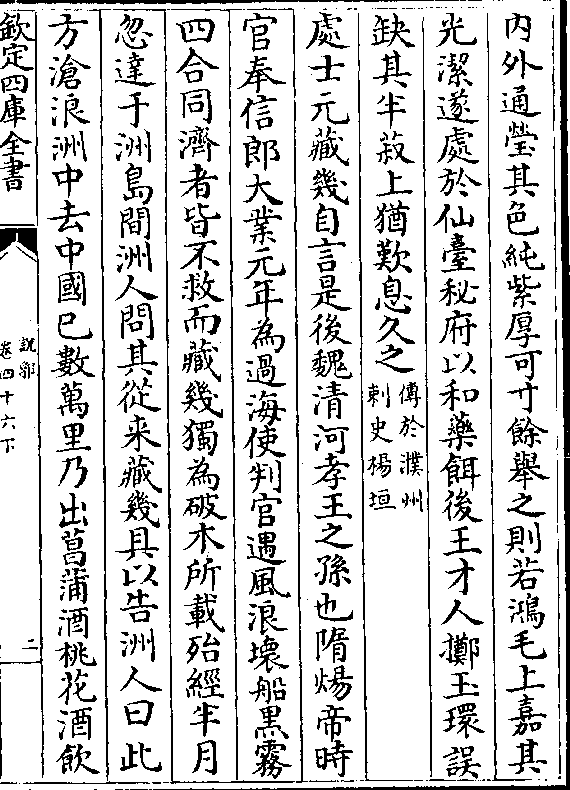 内外通瑩其色純紫厚可寸餘舉之則若鴻毛上嘉其
光潔遂處於仙臺秘府以和藥餌後王才人擲玉環誤
缺其半菽上猶歎息久之傳於濮州刺史楊垣
處士元藏幾自言是後魏清河孝王之孫也隋煬帝時
官奉信郎大業元年為過海使判官遇風浪壞船黒霧
四合同濟者皆不救而藏幾獨為破木所載殆經半月
忽達于洲島間洲人問其從来藏幾具以告洲人曰此
方滄浪洲中去中國已數萬里乃出菖蒲酒桃花酒飲
欽定四庫全書
說郛
卷四十六下
二